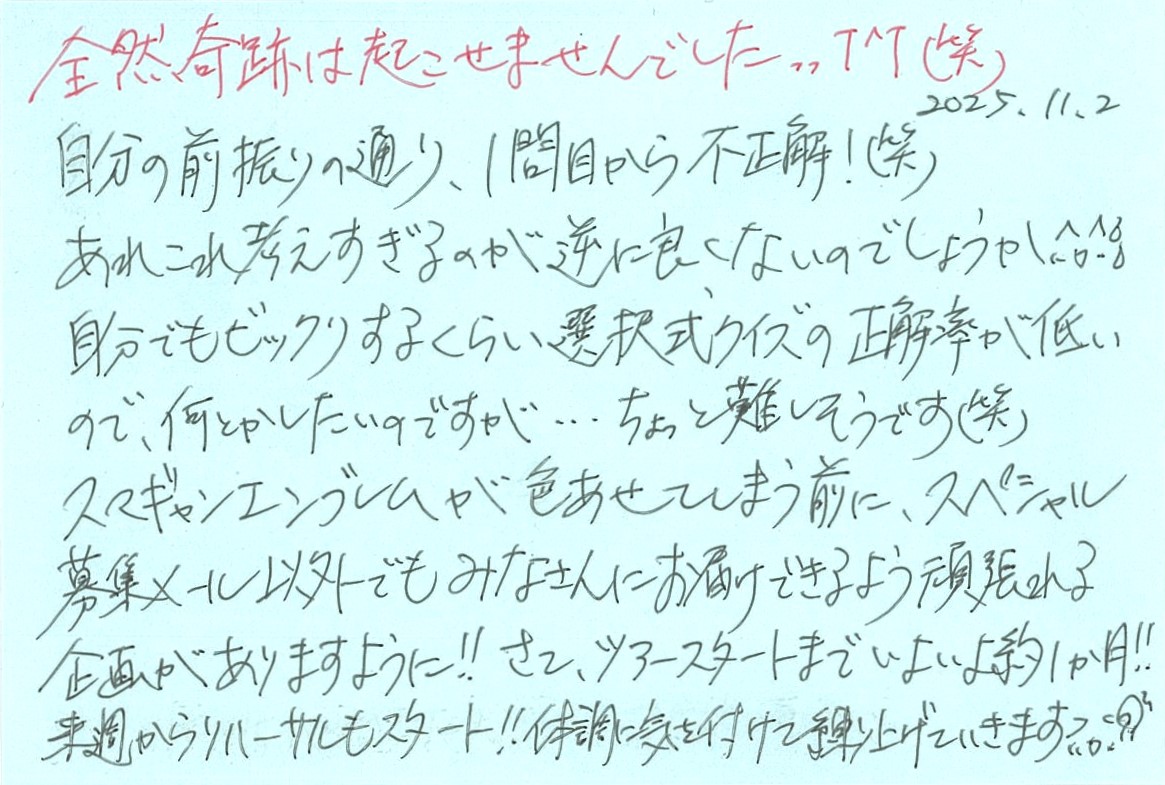 全然奇跡は起こせませんでした,, T^T (笑)
2025.11.2
自分の前振りの通り、1問目から不正解!(笑)
あれこれ考えすぎるのが逆に良くないのでしょうかし
自分でもビックリするくらい選択式クイズの正解率が低い
ので、何とかしたいのですが…ちょっと難しそうです(笑)
スマギャンエンブレムが色あせてしまう前に、スペシャル
募集メール以外でもみなさんにお届けできるよう頑張れる
企画がありますように!! さて、ツアースタートまでいよいよ約1か月!!
来週からリハーサルもスタート!!体調に気を付けて練り上げていきます